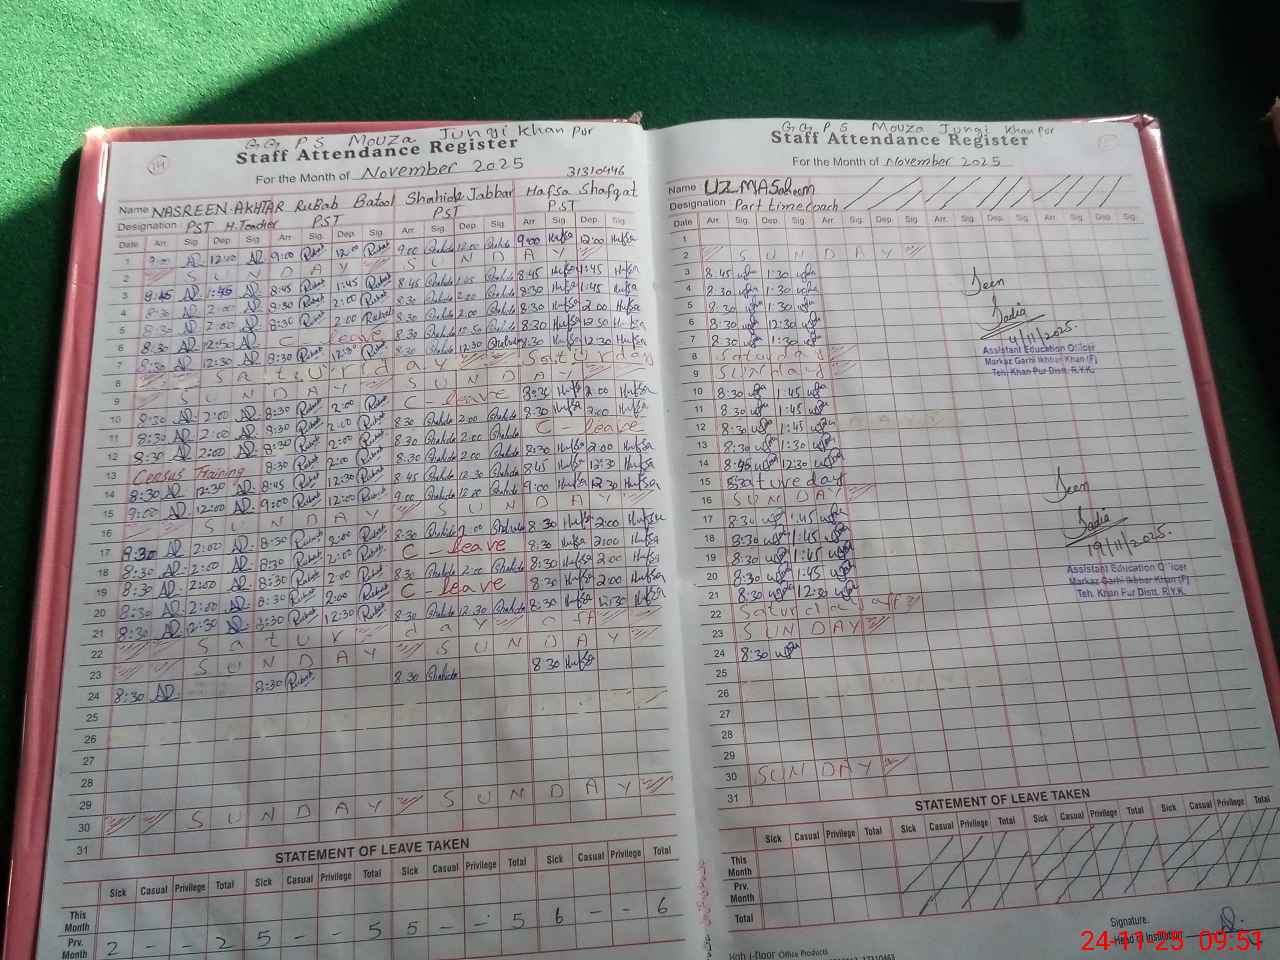 G.G P S Mouza Jungi Khan Pur
Staff Attendance Register
For the Month of November 2025
31310446
Name NASREEN AKHTAR RuBab Batool Shahida Jabbar Hafsa Shafqat
Designation PST H.Teacher PST PST PST
Date Arr. Sig. Dep. Sig. Arr. Sig. Dep. Sig. Arr. Sig. Dep. Sig. Arr. Sig. Dep. Sig.
1 9:00 12:00 9:00 Rubab 12:00 Rubab 9:00 Shahida 12:00 Shahida 9:00 Hafsa 12:00 Hafsa
2 SUNDAY SUNDAY
3 8:45 1:45 8:45 Rubab 1:45 Rubab 8:45 Shahida 1:45 Shahida 8:45 Hafsa 1:45 Hafsa
4 8:30 2:00 8:30 Rubab 2:00 Rubab 8:30 Shahida 2:00 Shahida 8:30 Hafsa 1:45 Hafsa
5 8:30 2:00 8:30 Rubab 2:00 Rubab 8:30 Shahida 2:00 Shahida 8:30 Hafsa 2:00 Hafsa
6 8:30 12:50 C - leave 8:30 Shahida 12:50 Shahida 8:30 Hafsa 12:50 Hafsa
7 8:30 12:30 8:30 Rubab 12:30 Rubab 8:30 Shahida 12:30 Shahida 8:30 Hafsa 12:30 Hafsa
8 Saturday Saturday
9 SUNDAY SUNDAY
10 8:30 2:00 8:30 Rubab 2:00 Rubab C - leave 8:30 Hafsa 2:00 Hafsa
11 8:30 2:00 8:30 Rubab 2:00 Rubab 8:30 Shahida 2:00 Shahida 8:30 Hafsa 2:00 Hafsa
12 8:30 2:00 8:30 Rubab 2:00 Rubab 8:30 Shahida 2:00 Shahida C - leave
13 Census Training 8:30 Rubab 2:00 Rubab 8:30 Shahida 2:00 Shahida 8:30 Hafsa 2:00 Hafsa
14 8:30 12:30 8:45 Rubab 12:30 Rubab 8:45 Shahida 12:30 Shahida 8:45 Hafsa 12:30 Hafsa
15 9:00 12:00 9:00 Rubab 12:00 Rubab 9:00 Shahida 12:00 Shahida 9:00 Hafsa 12:30 Hafsa
16 SUNDAY SUNDAY
17 8:30 2:00 8:30 Rubab 2:00 Rubab 8:30 Shahida 2:00 Shahida 8:30 Hafsa 2:00 Hafsa
18 8:30 2:00 8:30 Rubab 2:00 Rubab C - leave 8:30 Hafsa 2:00 Hafsa
19 8:30 2:00 8:30 Rubab 2:00 Rubab 8:30 Shahida 2:00 Shahida 8:30 Hafsa 2:00 Hafsa
20 8:30 2:00 8:30 Rubab 2:00 Rubab C leave 8:30 Hafsa 2:00 Hafsa
21 8:30 12:30 8:30 Rubab 12:30 Rubab 8:30 Shahida 12:30 Shahida 8:30 Hafsa 12:30 Hafsa
22 Saturday off
23 SUNDAY SUNDAY
24 8:30 8:30 Rubab 8:30 Shahida 8:30 Hafsa
25
26
27
28
29
30 SUNDAY SUNDAY
31
STATEMENT OF LEAVE TAKEN
Sick Casual Privilege Total Sick Casual Privilege Total Sick Casual Privilege Total Sick Casual Privilege Total
This Month
Prv. Month 2 - - 2 5 - - 5 5 - - 5 6 - - 6
G.G P S Mouza Jungi Khan Pur
Staff Attendance Register
For the Month of November 2025
Name UZMA Saleem
Designation Part time coach
Date Arr. Sig. Dep. Sig. Arr. Sig. Dep. Sig. Arr. Sig. Dep. Sig.
1
2 SUNDAY
3 8:45 uzma 1:30 uzma
4 8:30 uzma 1:30 uzma
5 8:30 uzma 1:30 uzma
6 8:30 uzma 12:30 uzma
7 8:30 uzma 1:30 uzma
8 Saturday
9 SUNDAY
10 8:30 uzma 1:45 uzma
11 8:30 uzma 1:45 uzma
12 8:30 uzma 1:45 uzma
13 8:30 uzma 1:30 uzma
14 8:45 uzma 12:30 uzma
15 Saturday
16 SUNDAY
17 8:30 uzma 1:45 uzma
18 8:30 uzma 1:45 uzma
19 8:30 uzma 1:45 uzma
20 8:30 uzma 1:45 uzma
21 8:30 uzma 12:30 uzma
22 Saturday off
23 SUNDAY
24 8:30 uzma
25
26
27
28
29
30 SUNDAY
31
Seen
Sadia
4/11/2025.
Assistant Education Officer
Markaz Garhi Ikhtiar Khan (F)
Teh. Khan Pur Distt. R.Y.K.
Seen
Sadia
19/11/2025.
Assistant Education Officer
Markaz Garhi Ikhtiar Khan (F)
Teh. Khan Pur Distt. R.Y.K.
STATEMENT OF LEAVE TAKEN
Sick Casual Privilege Total Sick Casual Privilege Total Sick Casual Privilege Total
This Month
Prv. Month
Total
Signature.
Head of Institution
Office Products
24-11-25 09:51